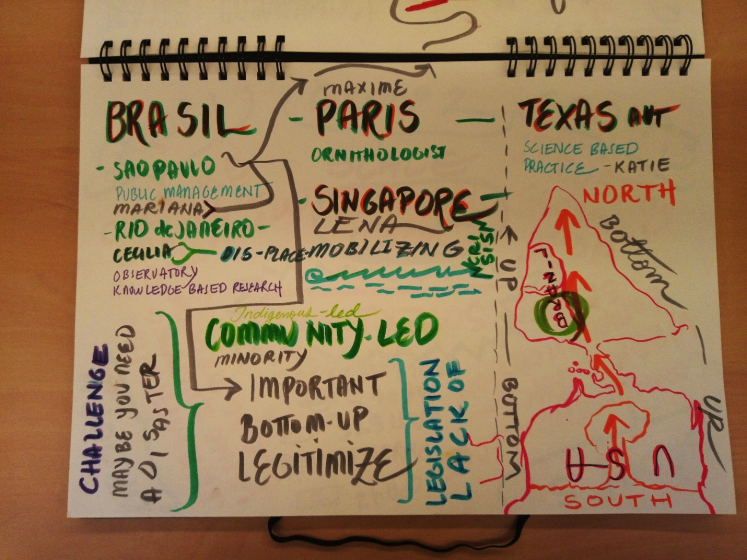 BRASIL
- SAO PAULO
PUBLIC MANAGEMENT
MARIANA
- RIO de JANEIRO -
CECILIA
DIS-PLACE-MOBILIZING
OBSERVATORY
KNOWLEDGE BASED RESEARCH
MAXIME
- PARIS -
ORNITHOLOGIST
- SINGAPORE
LENA
TEXAS AUT
SCIENCE BASED
PRACTICE - KATIE
NORTH
Bottom
UP
BOTTOM
UP
USA
SOUTH
Indigenous-led
COMMUNITY-LED
MINORITY
IMPORTANT
BOTTOM-UP
LEGITIMIZE
LEGISLATION
LACK OF
CHALLENGE
MAYBE YOU NEED
A DISASTER